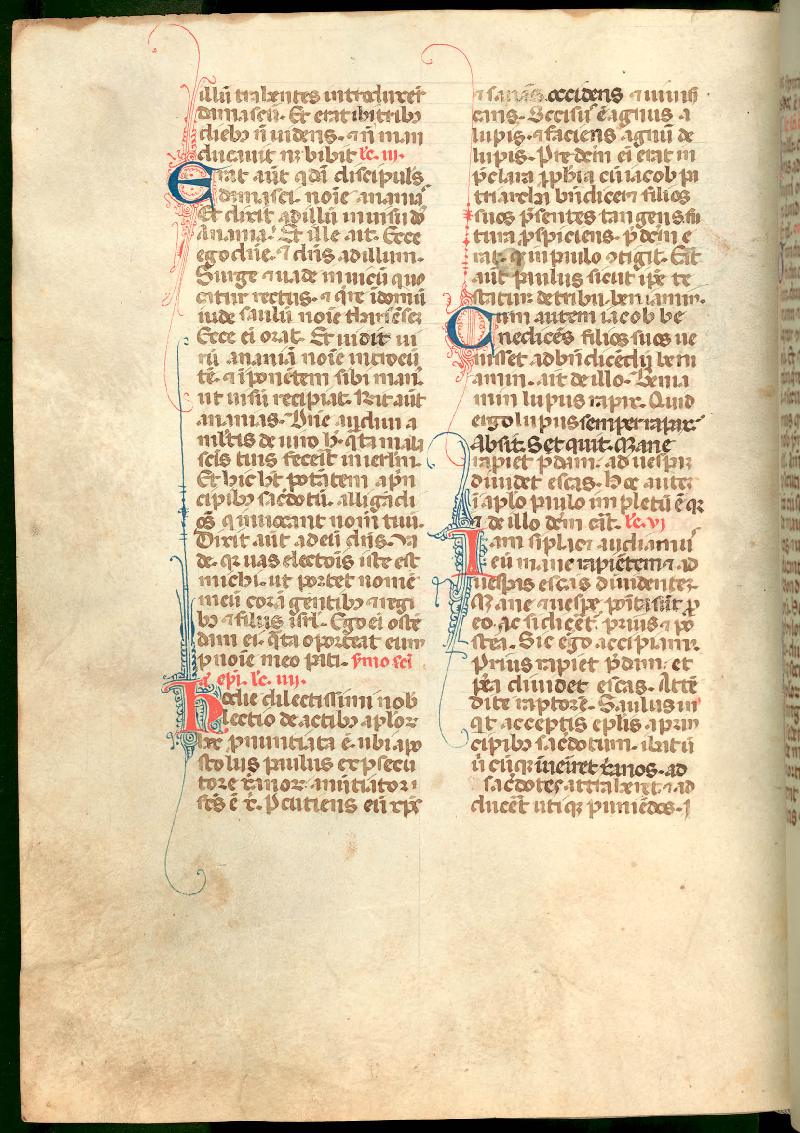 illū trahentes introduxert̄
damascū. Et erat ibi tribꝰ
diebꝰ ñ uidens. ⁊ ñ man
ducauit nꝫ bibit lc̄. iii.
Erat aūt qdā discipulꝰ
damasci. noīe ananiaˢ
Et dixit ad illū in uisu dn̄s
Anania. Et ille ait. Ecce
ego dn̄e. ⁊ dn̄s ad illum.
Surge ⁊ uade in uicū qui uo
catur rectus. ⁊ q̄re ī domū
iude saulū noīe tharsēsē.
Ecce eī orat. Et uidit ui
rū ananiā noīe introeū
tē. ⁊ īponētem sibi manꝰ
ut uisū recipiat. Rn̄t aūt
ananias. Dn̄e audiui a
mltis de uiro h̄. q̄ta mala
sc̄is tuis fecerit in ierlm̄.
Et hic ht̄ potātem a pn̄
cipibꝰ sac̄dotū. alligādi
oēs q̄ inuocant nom̄ tuū.
Dixit aūt ad eū dn̄s. Ua
de. qꝛ uas electōis iste est
michi. ut portet nomē
meū corā gentibꝰ ⁊ regi
bꝰ ⁊ filiis isrl̄. Ego eī ostē
dam ei. q̄ta oporteat eum
p noīe meo pati. sermo sci
epī. lc̄. iiii.
Hodie dilectissimi nob̄
lectio de actibꝰ aplōꝝ
hec p̄nuntiata ē. ubi apo
stolus paulus ex psecu
tore xr̄anoꝝ. annūtiator
fc̄s ē x̄. Pcutiens eū xp̄c
⁊ sanās. occidens ⁊ uiuifi
cans. Occisus ē agnus a
lupis. ⁊ faciens agnū de
lupis. Predcm̄ eī erat in
p̄clara pphīa cū iacob pa
triarcha bn̄diceret filios
suos p̄sentes tangens fu
tura pspiciens. p̄dcm̄ e
rat. q in paulo ꝯtigit. Erat
aūt paulus sicut ipe te
statur de tribu beniamin.
Cum autem iacob be
nedicēs filios suos ue
nisset ad bn̄dicēdū beni
amin. ait de illo. Benia
min lupus rapax. Quid
ergo lupus semper rapax.
Absit. Set quit. Mane
rapiet p̄dam. ad uesperū
diuidet escas. Hoc autē
ī aplo paulo impletū ē qꝛ
⁊ de illo dcm̄ erat. lc̄. vi
Iam si placet audiamꝰ
eū mane rapiētem ⁊ ad
uesperas escas diuidentem.
Mane ⁊ uespe. posita sūt p
eo. ac si diceret. prius ⁊ po
stea. Sic ergo accipiamꝰ.
Prius rapiet p̄dam. et
postea diuidet escas. Attē
dite raptorē. Saulus in
qt acceptis eplis a prin
cipibꝰ sacdotum. ibat ū
ū cūqꝫ īueniret xr̄anos. ad
sacdotes attraheret ⁊ ad
ducēt utiqꝫ puniēdos. I